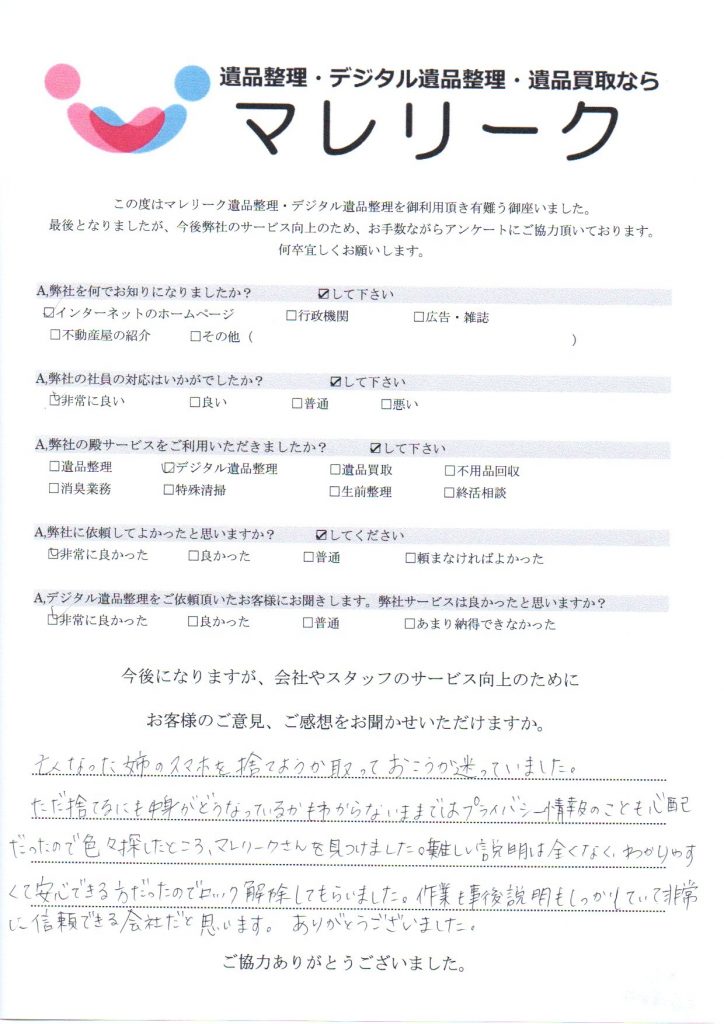 遺品整理・デジタル遺品整理・遺品買取なら
マレリーク
この度はマレリーク遺品整理・デジタル遺品整理を御利用頂き有難う御座いました。
最後となりましたが、今後弊社のサービス向上のため、お手数ながらアンケートにご協力頂いております。
何卒宜しくお願いします。
A,弊社を何でお知りになりましたか？ ☑して下さい
☑インターネットのホームページ □行政機関 □広告・雑誌
□不動産屋の紹介 □その他（ ）
A,弊社の社員の対応はいかがでしたか？ ☑して下さい
☑非常に良い □良い □普通 □悪い
A,弊社の殿サービスをご利用いただきましたか？ ☑して下さい
□遺品整理 ☑デジタル遺品整理 □遺品買取 □不用品回収
□消臭業務 □特殊清掃 □生前整理 □終活相談
A,弊社に依頼してよかったと思いますか？ ☑してください
☑非常に良かった □良かった □普通 □頼まなければよかった
A,デジタル遺品整理をご依頼頂いたお客様にお聞きします。弊社サービスは良かったと思いますか？
☑非常に良かった □良かった □普通 □あまり納得できなかった
今後になりますが、会社やスタッフのサービス向上のために
お客様のご意見、ご感想をお聞かせいただけますか。
亡くなった姉のスマホを捨てようか取っておこうか迷っていました。
ただ捨てるにも中身がどうなっているかもわからないままではプライバシー情報のことも心配
だったので色々探したところ、マレリークさんを見つけました。難しい説明は全くなく、わかりやす
くて安心できる方だったのでロック解除してもらいました。作業も事後説明もしっかりしていて非常
に信頼できる会社だと思います。ありがとうございました。
ご協力ありがとうございました。